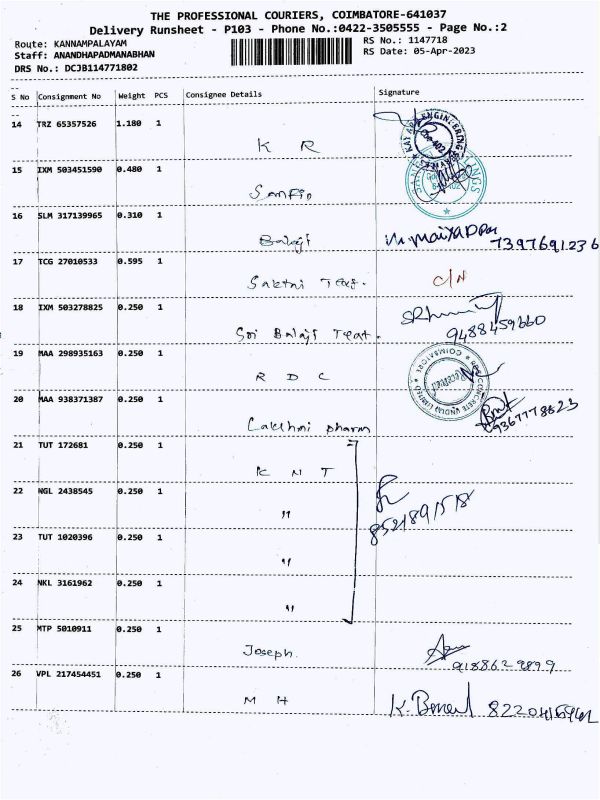 THE PROFESSIONAL COURIERS, COIMBATORE-641037
Delivery Runsheet - P103 - Phone No.:0422-3505555 - Page No.:2
Route: KANNAMPALAYAM
RS No.: 1147718
Staff: ANANDHAPADMANABHAN
RS Date: 05-Apr-2023
DRS No.: DCJB114771802
S No Consignment No Weight PCS Consignee Details Signature
14 TRZ 65357526 1.180 1
K R
15 IXM 503451590 0.480 1
16 SLM 317139965 0.310 1
Balaji
7397691236
17 TCG 27010533 0.595 1
Sakthi Tex. C/N
18 IXM 503278825 0.250 1
Sri Balaji Teat. 9488459660
19 MAA 298935163 0.250 1
R D C
20 MAA 938371387 0.250 1
Lakshmi pharm 9367778823
21 TUT 172681 0.250 1
K N T
22 NGL 2438545 0.250 1
"
8521891518
23 TUT 1020396 0.250 1
"
24 NKL 3161962 0.250 1
"
25 MTP 5010911 0.250 1
Joseph.
26 VPL 217454451 0.250 1
M H